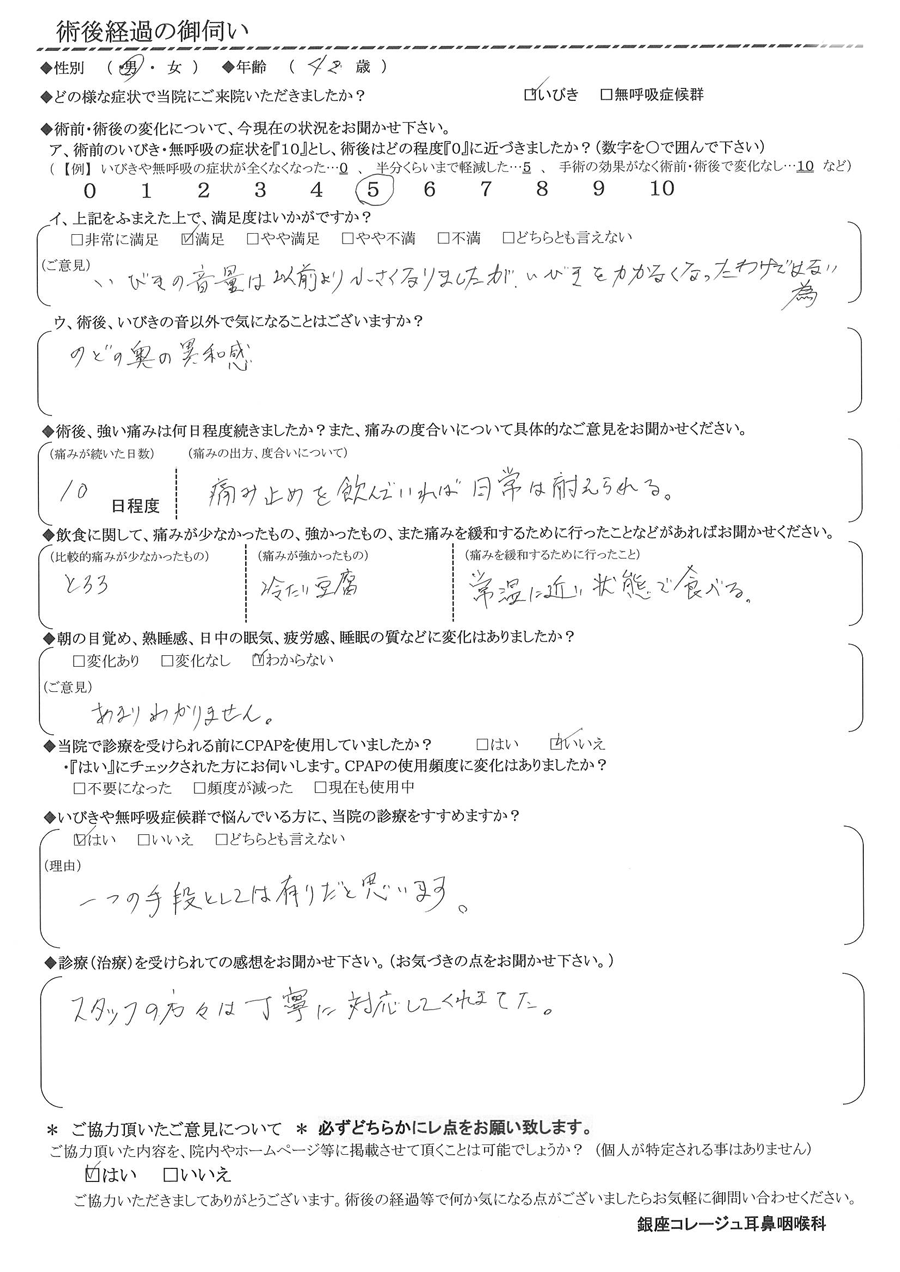 術後経過の御伺い
◆性別 (男・女) ◆年齢 (42歳)
◆どの様な症状で当院にご来院いただきましたか? ☑いびき □無呼吸症候群
◆術前・術後の変化について、今現在の状況をお聞かせ下さい。
ア、術前のいびき・無呼吸の症状を『10』とし、術後はどの程度『0』に近づきましたか?(数字を〇で囲んで下さい)
(【例】いびきや無呼吸の症状が全くなくなった…0 、 半分くらいまで軽減した…5 、 手術の効果がなく術前・術後で変化なし…10 など)
0 1 2 3 4 5 6 7 8 9 10
イ、上記をふまえた上で、満足度はいかがですか?
□非常に満足 ☑満足 □やや満足 □やや不満 □不満 □どちらとも言えない
(ご意見) いびきの音量は以前より小さくなりましたが、いびきをかかなくなったわけではない
為
ウ、術後、いびきの音以外で気になることはございますか?
のどの奥の異和感
◆術後、強い痛みは何日程度続きましたか?また、痛みの度合いについて具体的なご意見をお聞かせください。
(痛みが続いた日数) (痛みの出方、度合いについて)
10 日程度 痛み止めを飲んでいれば日常は耐えられる。
◆飲食に関して、痛みが少なかったもの、強かったもの、また痛みを緩和するために行ったことなどがあればお聞かせください。
(比較的痛みが少なかったもの) (痛みが強かったもの) (痛みを緩和するために行ったこと)
とろろ 冷たい豆腐 常温に近い状態で食べる。
◆朝の目覚め、熟睡感、日中の眠気、疲労感、睡眠の質などに変化はありましたか?
□変化あり □変化なし ☑わからない
(ご意見)
あまりわかりません。
◆当院で診療を受けられる前にCPAPを使用していましたか? □はい ☑いいえ
・『はい』にチェックされた方にお伺いします。CPAPの使用頻度に変化はありましたか?
□不要になった □頻度が減った □現在も使用中
◆いびきや無呼吸症候群で悩んでいる方に、当院の診療をすすめますか?
☑はい □いいえ □どちらとも言えない
(理由)
一つの手段としては有りだと思います。
◆診療(治療)を受けられての感想をお聞かせ下さい。(お気づきの点をお聞かせ下さい。)
スタッフの方々は丁寧に対応してくれました。
＊ ご協力頂いたご意見について ＊ 必ずどちらかにレ点をお願い致します。
ご協力頂いた内容を、院内やホームページ等に掲載させて頂くことは可能でしょうか? (個人が特定される事はありません)
☑はい □いいえ
ご協力いただきましてありがとうございます。術後の経過等で何か気になる点がございましたらお気軽に御問い合わせください。
銀座コレージュ耳鼻咽喉科